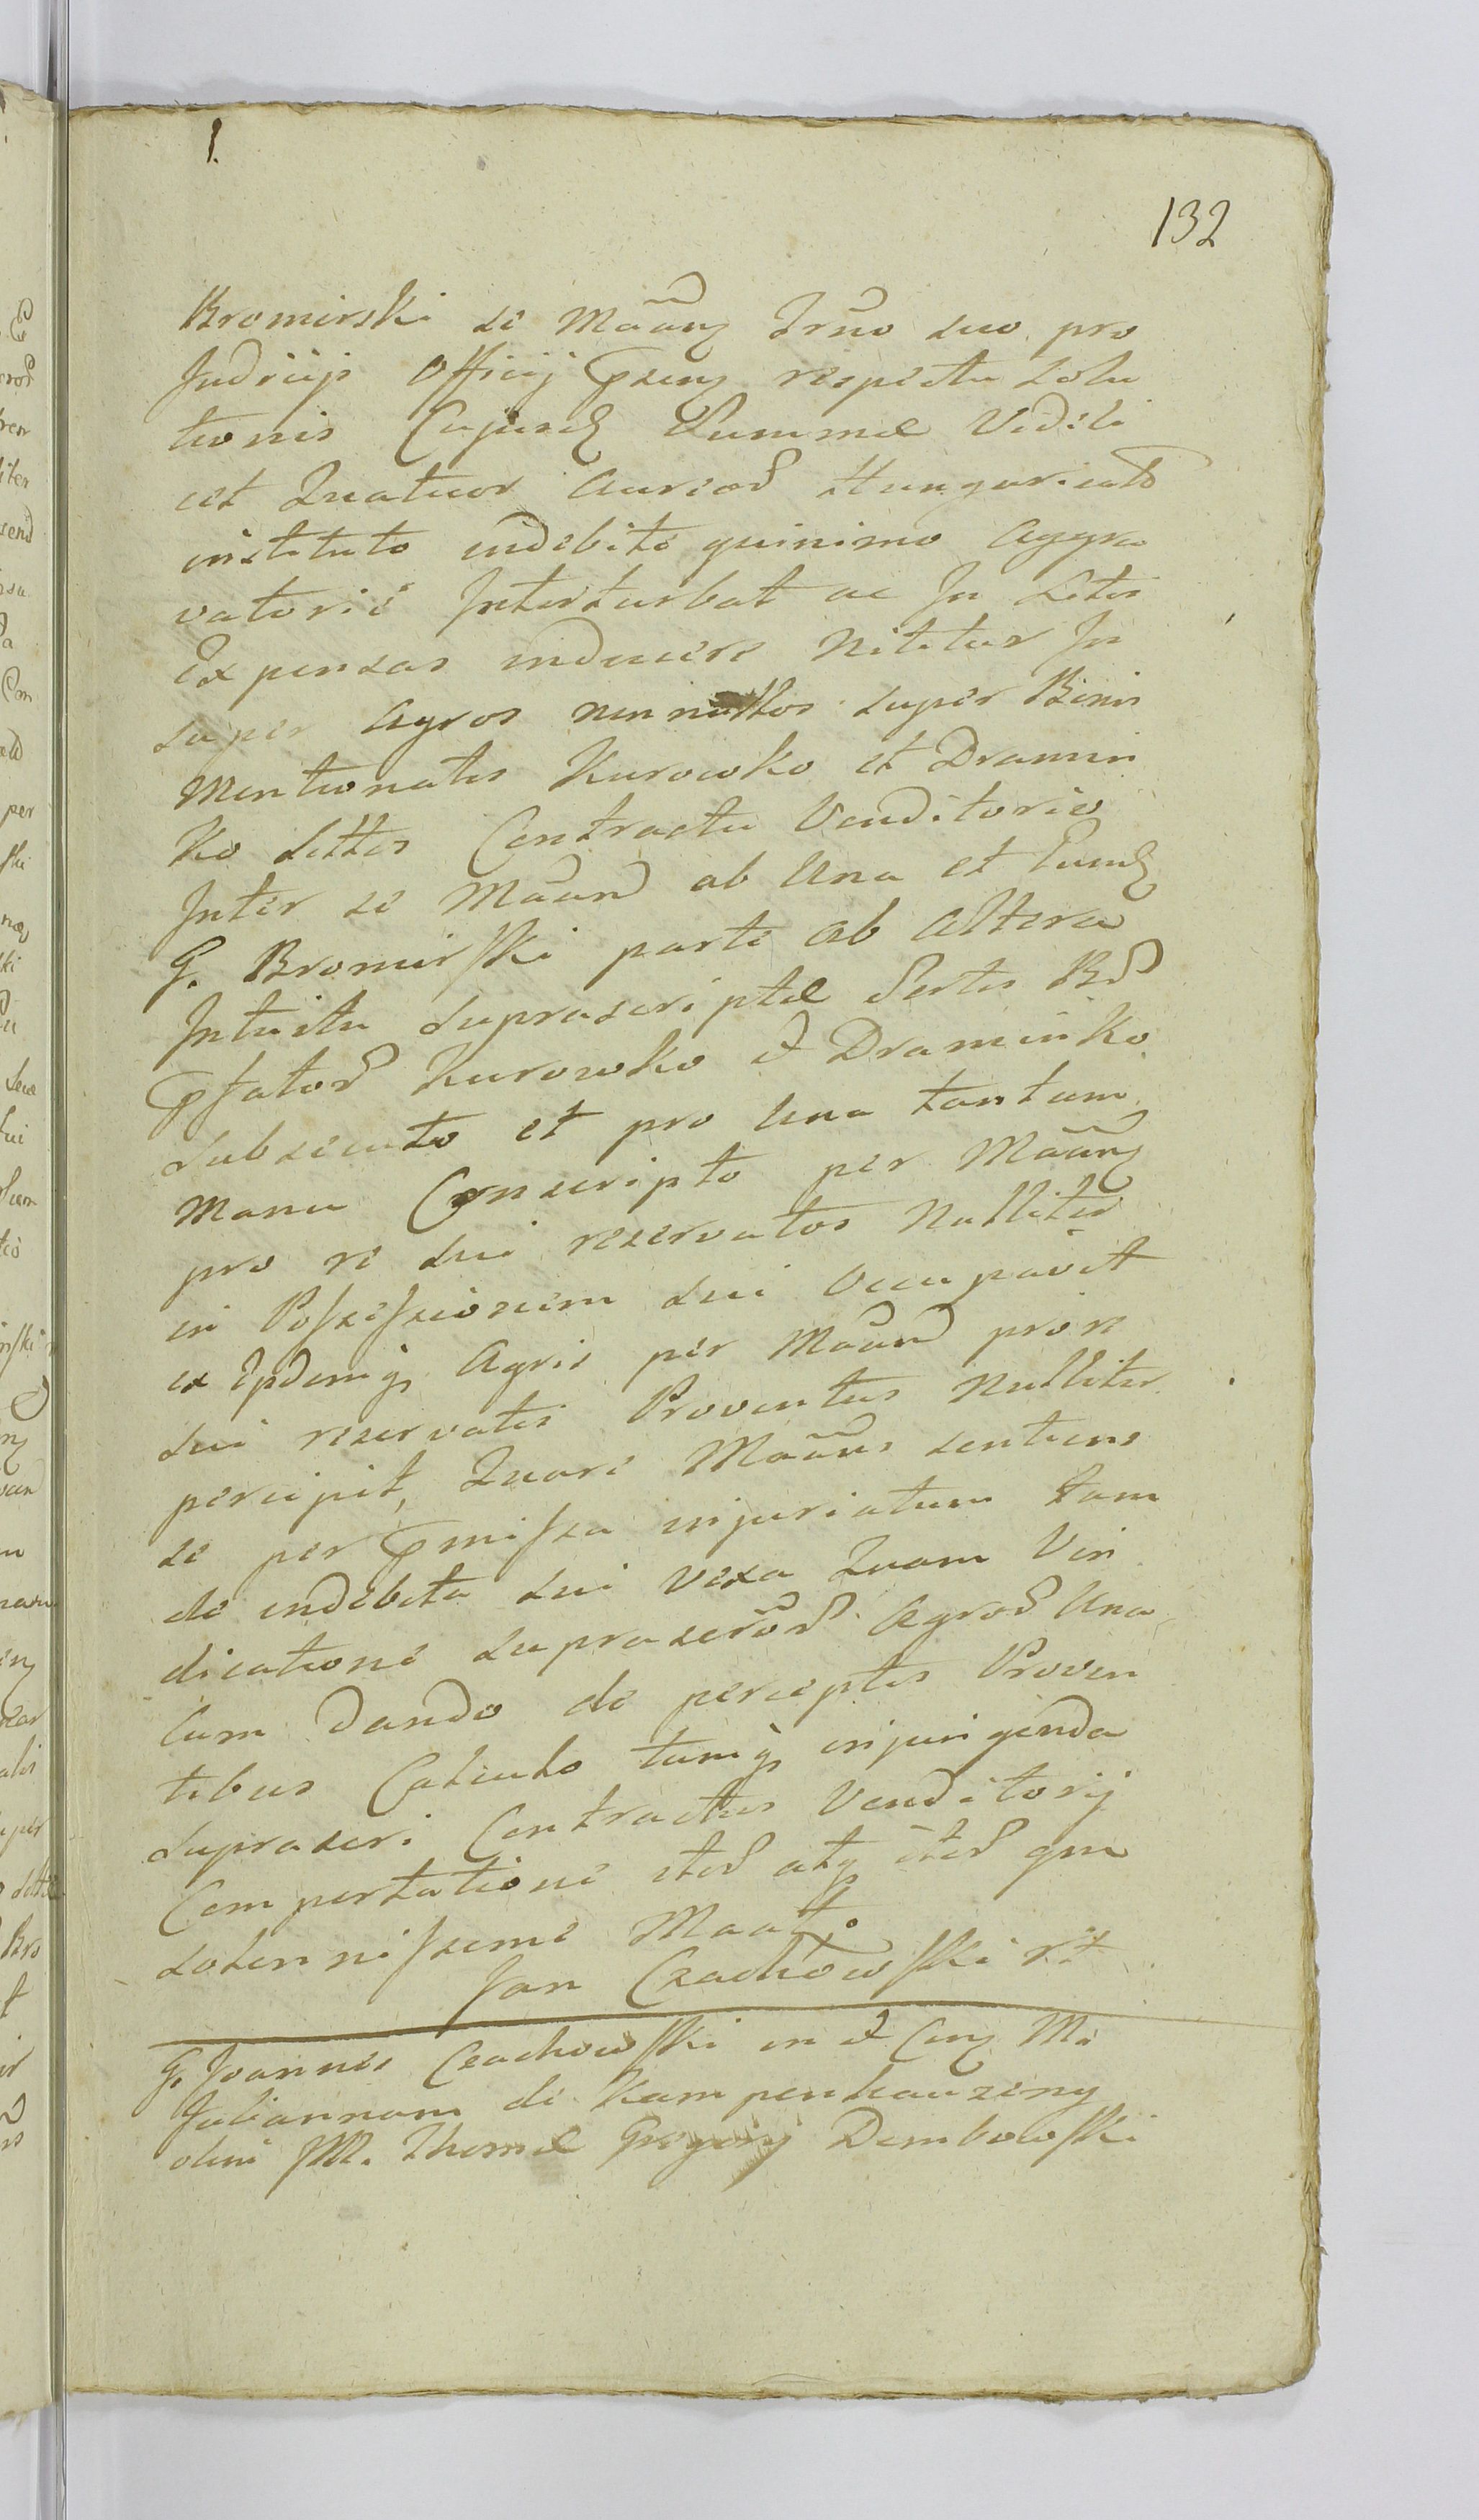 132
Bromirski se Maañ Trño suo pro
Judicijs Officij respectu solu
tionis Cujusd Summæ Videli
cet Quatuor Aureor Hungarical
instituto indebite quinimo Aggra
vatorie Interturbat ac In Litis
Expensas inducere Nititur In
super Agros nonnullos super Bonis
Mentionatis Kurowko et Dramin
ko Littis Contractu Venditorio
Inter se Maan ab Una et Eund
G. Bromirski parte ab Altera
Intuitu Suprascriptæ Sortis
Kurowko et Draminko
Subsecuto et pro Una tantum
Manu Conscripto per Maañ
pro re sui reservatos Nulliter
in Possessionem sui Occupavit
ex Ipdemq Agris per Maan pro re
sui reservatis Proventus Nulliter
percipit, Quare Maañs sentiens
se per pmissa injuriatum tam
de indebita sui vexa Quam Vin
dicatione suprascror Agror Una
Cum Dando de perceptis Proven
tibus Calculo tumq injungenda
suprascri Contractus Venditorij
Comportatione atq
solennissime Maat.
Jan Czachowski
G. Joannes Czachowski in et M.
Juliannam de Kampenhauzeny
olim M. Thomæ Gregorij Dembowski